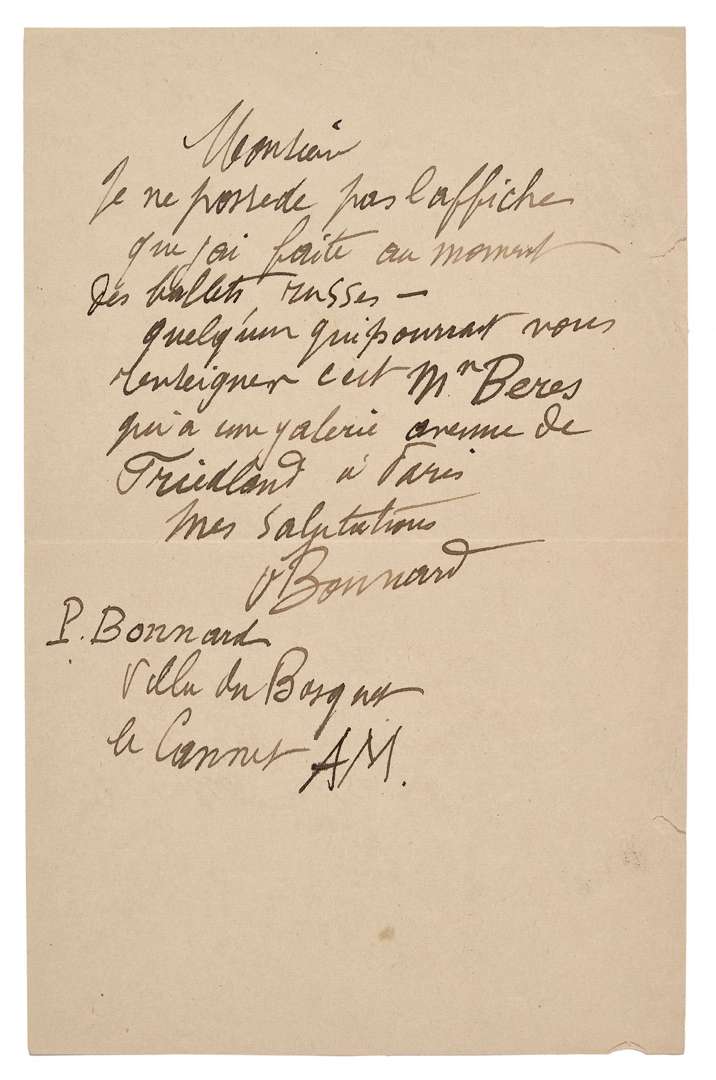 Monsieur
Je ne possede pas l'affiche
que j'ai faite au moment
des ballets russes —
quelqu'un qui pourrait vous
renseigner c'est Mr Beres
qui a une galerie avenue de
Friedland à Paris
Mes salutations
P Bonnard
P. Bonnard
Villa du Bosquet
le Cannet AM.